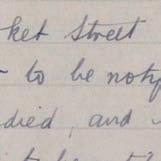 ket Street
to be notif
died, and